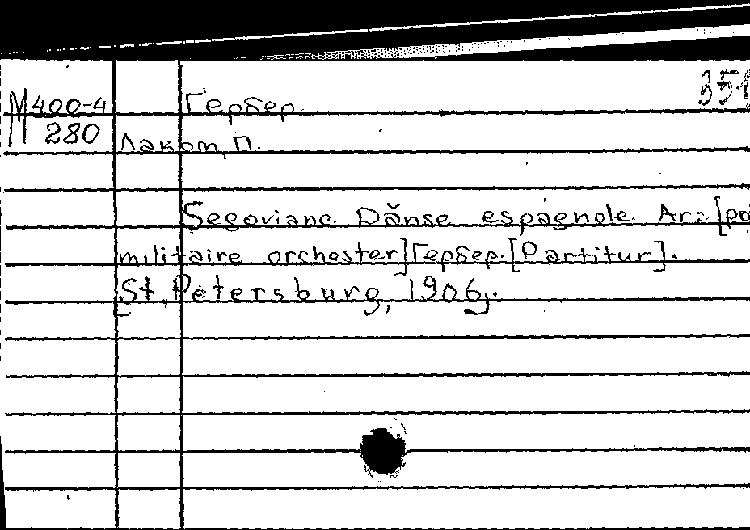 М400-4 Гербер. 351
280 Лаком, П.
Segoviane Dănse espagnole. Arr. [po
militaire orchester] Гербер. [Partitur].
[St. Petersburg, 1906].